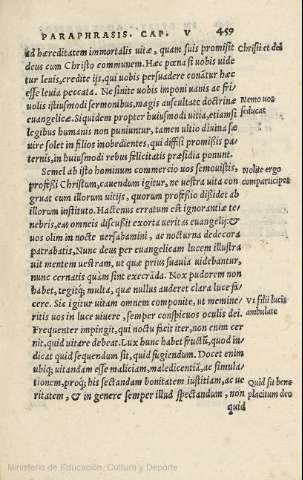 PARAPHRASIS. CAP. V 459
ad hæreditatem immortalis uitæ, quam suis promisit
deus cum Christo communem. Hæc pœna si uobis uide
tur leuis, credite ijs, qui uobis persuadere conātur hæc
esse leuia peccata. Ne sinite uobis imponi uanis ac fri
uolis istiusmodi sermonibus, magis auscultate doctrinæ
euangelicæ. Siquidem propter huiusmodi uitia, etiamsi
legibus humanis non puniuntur, tamen ultio diuina sæ
uire solet in filios inobedientes, qui diffisi promissis pa
ternis, in huiusmodi rebus felicitatis præsidia ponunt.
Semel ab isto hominum commercio uos semouistis,
professi Christum, cauendum igitur, ne uestra uita con
gruat cum illorum uitijs, quorum professio dissidet ab
illorum instituto. Hactenus erratum est ignorantiæ te
nebris, eas omneis discussit exorta ueritas euangelij: &
uos olim in nocte uersabamini, ac nocturna dedecora
patrabatis. Nunc deus per euangelicam lucem illustra
uit mentem uestram, ut quæ prius suauia uidebantur,
nunc cernatis quàm sint execrāda. Nox pudorem non
habet, tegitq; multa, quæ nullus auderet clara luce fa=
cere. Sic igitur uitam omnem componite, ut memine=
ritis uos in luce uiuere, semper conspicuos oculis dei.
Frequenter impingit, qui noctu facit iter, non enim cer
nit, quid uitare debeat. Lux hunc habet fructū, quod in
dicat quid sequendum sit, quid fugiendum. Docet enim
ubiq; uitandam esse maliciam, maledicentiā, ac simula=
tionem, proq; his sectandam bonitatem iustitiam, ac ue
ritatem, & in genere semper illud spectandum, non
quid
Christi et dei
Nemo uos
seducat
Nolite ergo
comparticipes
Vt filij lucis
ambulate
Quid sit bene
placitum deo
Ministerio de Educación, Cultura y Deporte